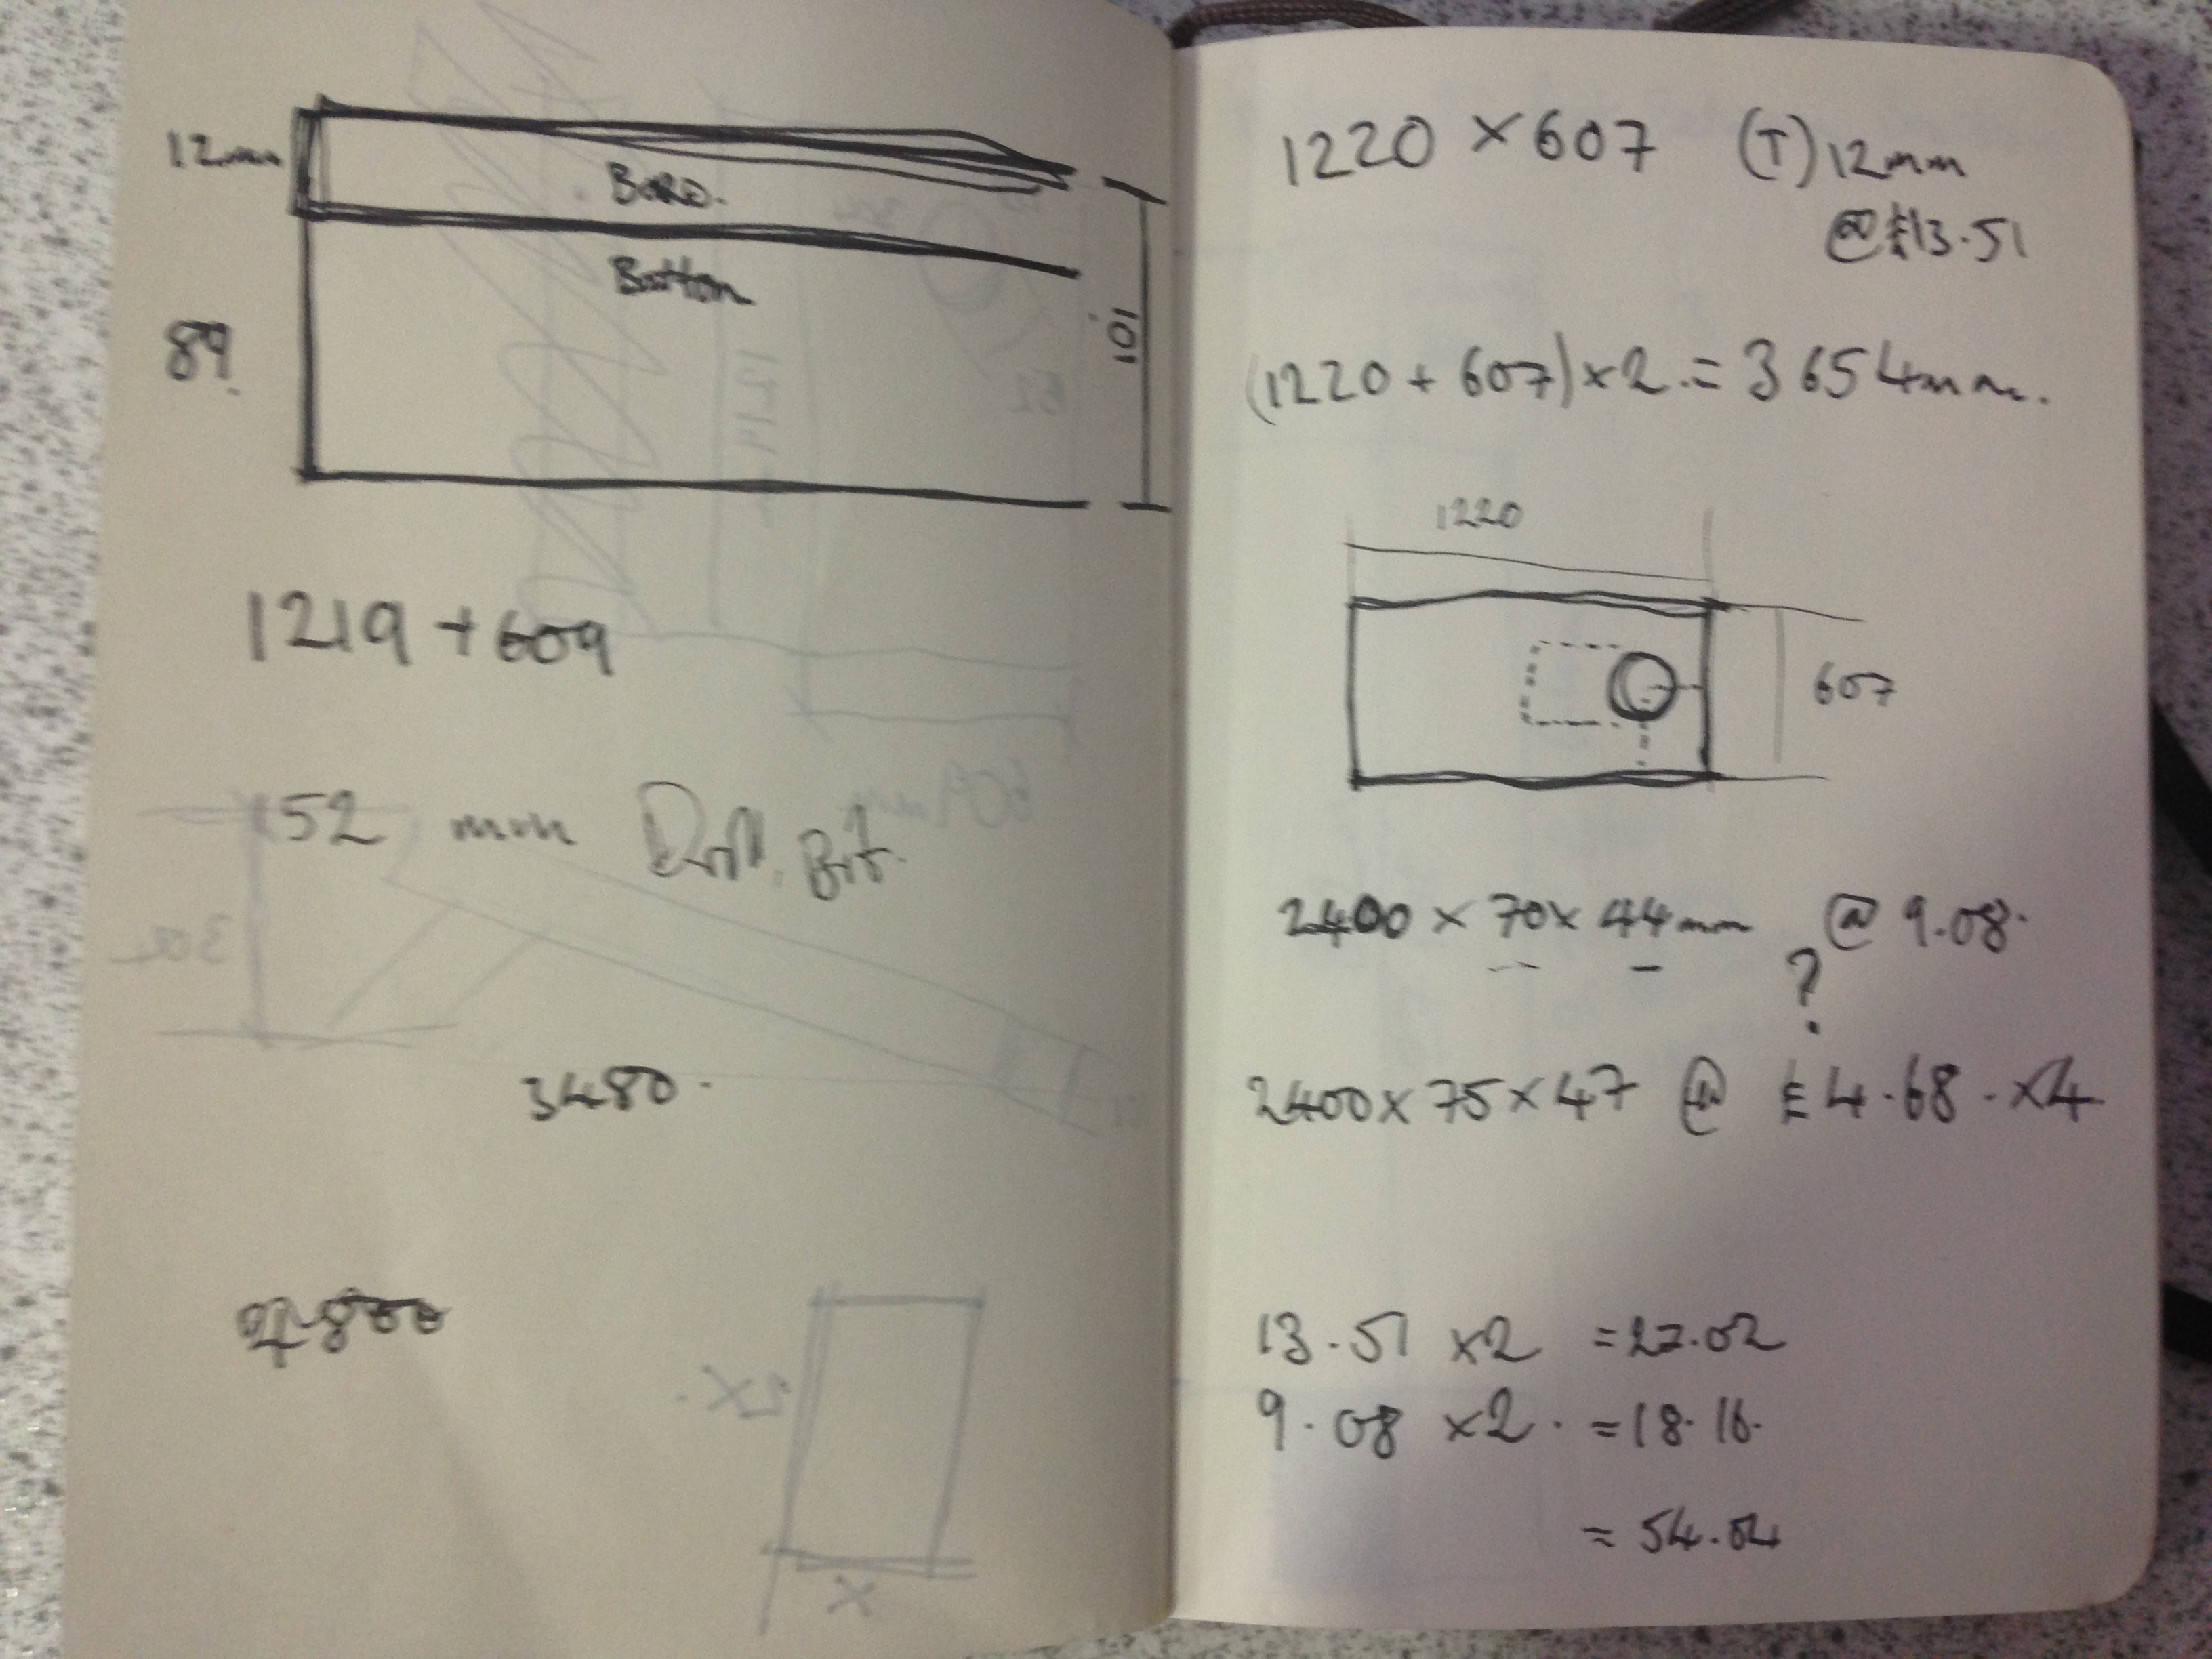 12mm
Board.
Batton
89
101
1219 + 609
152 mm Drill Bit.
3480.
1220 × 607 (T) 12mm
@ £13.51
(1220 + 607) × 2 = 3654mm.
1220
607
2400 × 70 × 44mm @ 9.08.
?
2400 × 75 × 47 @ £4.68 . ×4
13.51 ×2 = 27.02
9.08 ×2 . = 18.16.
= 54.04